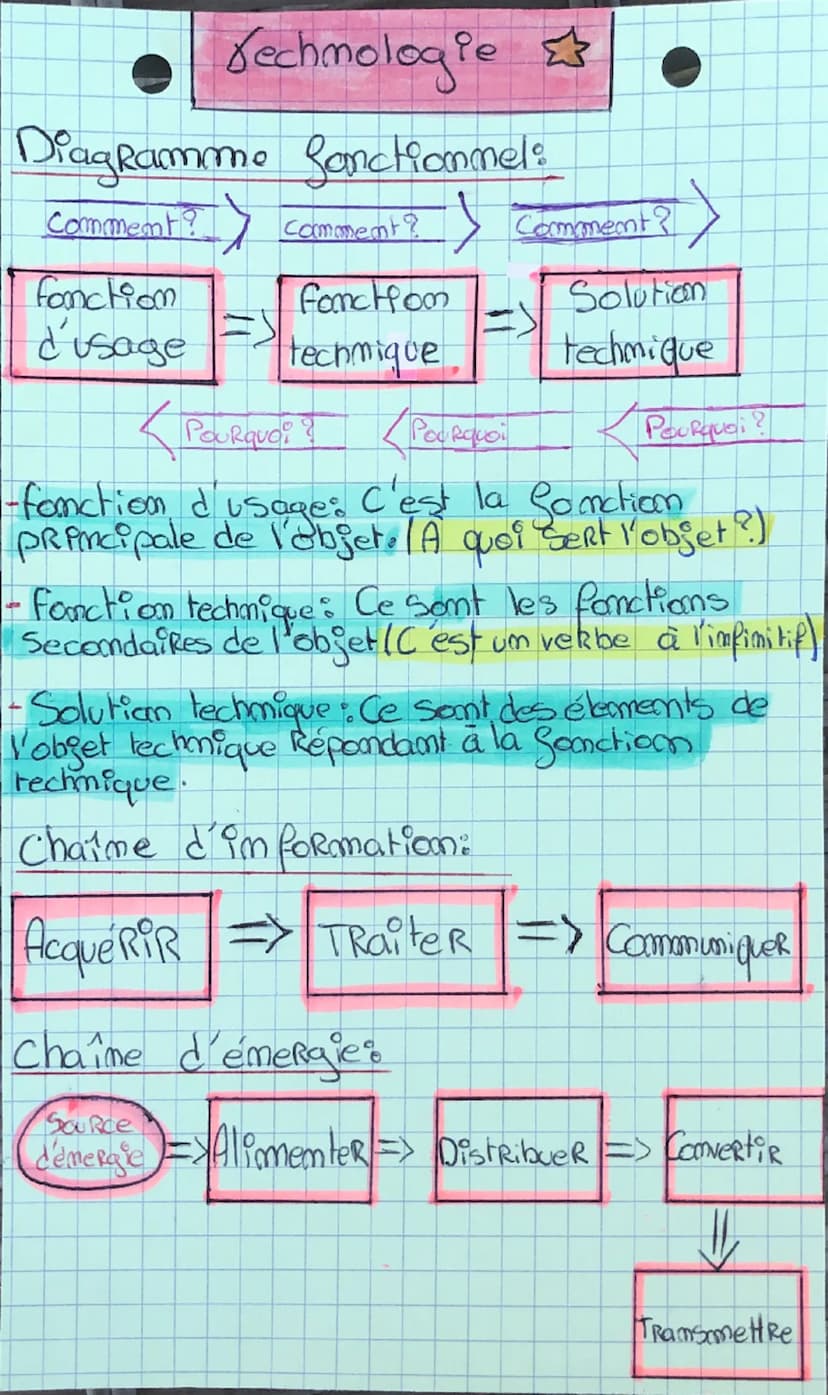 Technologie
Diagramme fonctionnel:
Comment? Comment? Comment?
fonction fonction Solution
d'usage => technique => technique
Pourquoi? Pourquoi Pourquoi?
-fonction d'usage: C'est la fonction
principale de l'objet. (A quoi sert l'objet?)
- Fonction technique: Ce sont les fonctions
secondaires de l'objet (C'est un verbe à l'infinitif)
- Solution technique: Ce sont des éléments de
l'objet technique Répondant à la fonction
technique.
Chaîne d'information:
Acquérir => Traiter => Communiquer
Chaîne d'énergie:
Source
d'énergie => Alimenter => Distribuer => Convertir
Transmettre